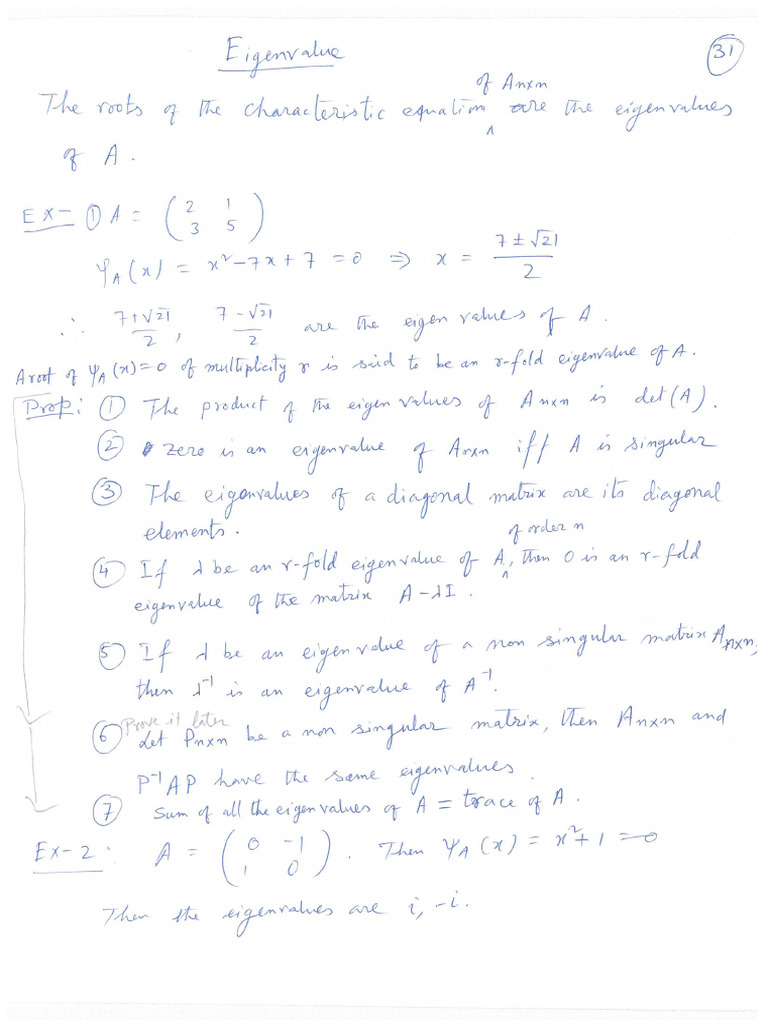 Eigenvalue
31
of Anxn
The roots of the characteristic equation ^ are the eigenvalues
of A.
Ex- ① A = ( 2 1
3 5 )
ΨA(x) = x² - 7x + 7 = 0 ⇒ x = 7 ± √21 / 2
∴ 7+√21 / 2, 7-√21 / 2 are the eigen values of A.
A root of ΨA(x)=0 of multiplicity r is said to be an r-fold eigenvalue of A.
Prop: ① The product of the eigen values of Anxn is det(A).
② zero is an eigenvalue of Anxn iff A is singular
③ The eigenvalues of a diagonal matrix are its diagonal
elements.
of order n
④ If λ be an r-fold eigenvalue of A ^, then 0 is an r-fold
eigenvalue of the matrix A-λI.
⑤ If λ be an eigenvalue of a non singular matrix Anxn,
then λ⁻¹ is an eigenvalue of A⁻¹.
Prove it later
⑥ Let Pnxn be a non singular matrix, then Anxn and
P⁻¹AP have the same eigenvalues.
⑦ Sum of all the eigenvalues of A = trace of A.
Ex-2: A = ( 0 -1
1 0 ). Then ΨA(x) = x²+1 = 0
Then the eigenvalues are i, -i.